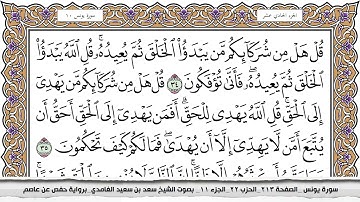 الجزء الحادي عشر
سورة يونس ١٠
قُلْ هَلْ مِن شُرَكَآئِكُم مَّن يَبْدَؤُا۟ ٱلْخَلْقَ ثُمَّ يُعِيدُهُۥ ۚ قُلِ ٱللَّهُ يَبْدَؤُا۟
ٱلْخَلْقَ ثُمَّ يُعِيدُهُۥ ۖ فَأَنَّىٰ تُؤْفَكُونَ ٣٤ قُلْ هَلْ مِن شُرَكَآئِكُم مَّن يَهْدِىٓ
إِلَى ٱلْحَقِّ ۚ قُلِ ٱللَّهُ يَهْدِى لِلْحَقِّ ۗ أَفَمَن يَهْدِىٓ إِلَى ٱلْحَقِّ أَحَقُّ أَن
يُتَّبَعَ أَمَّن لَّا يَهِدِّىٓ إِلَّآ أَن يُهْدَىٰ ۖ فَمَا لَكُمْ كَيْفَ تَحْكُمُونَ ٣٥
سورة يونس _ الصفحة ٢١٣ _ الحزب ٢٢ _ الجزء ١١ _ بصوت الشيخ سعد بن سعيد الغامدي _ برواية حفص عن عاصم